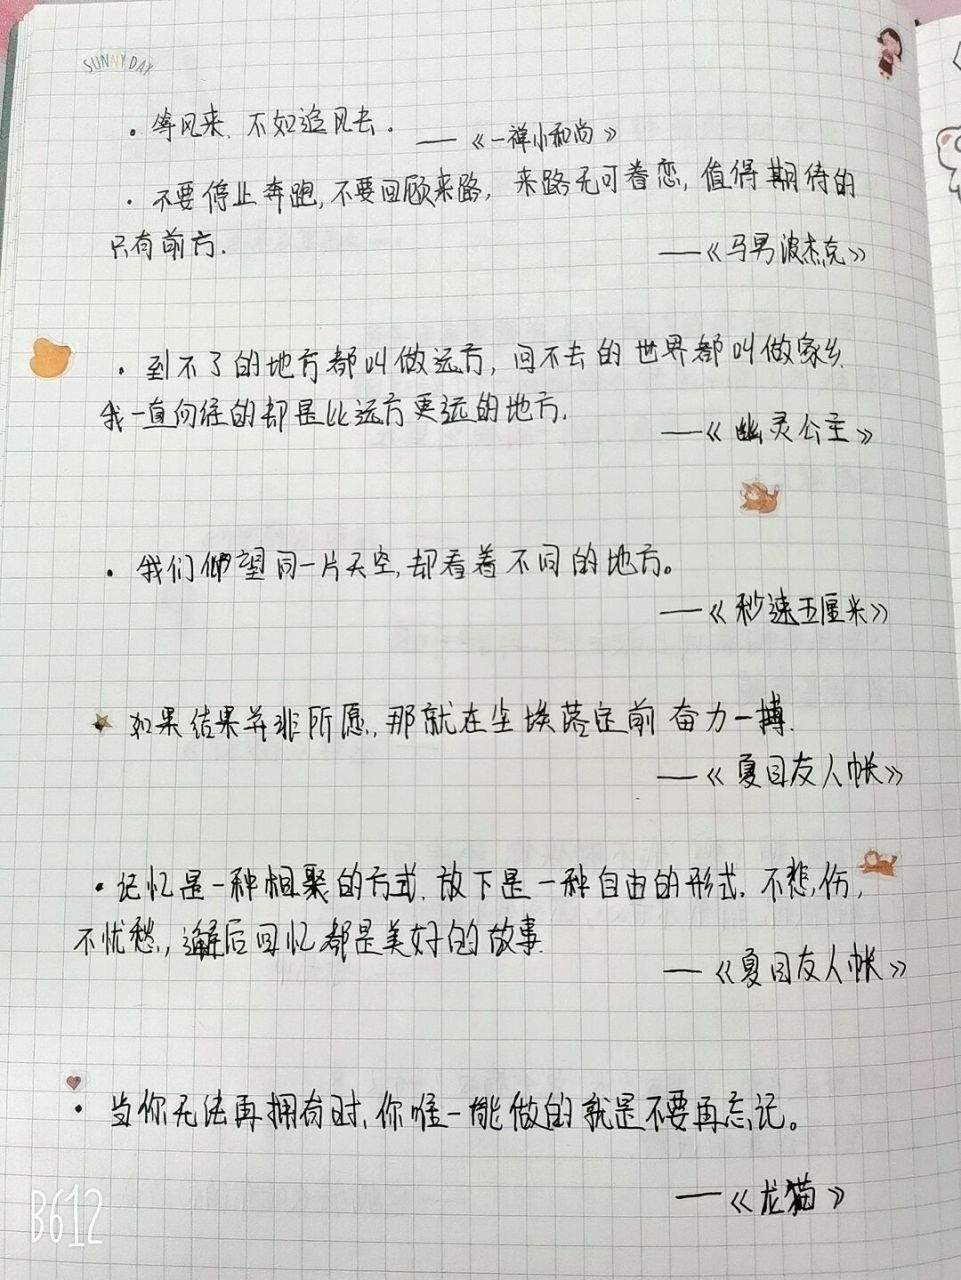 SUNNY DAY
· 等风来、不如追风去.
——《一禅小和尚》
· 不要停止奔跑,不要回顾来路,来路无可眷恋,值得期待的
只有前方.
——《马男波杰克》
· 到不了的地方都叫做远方,回不去的世界都叫做家乡.
我一直向往的却是比远方更远的地方.
——《幽灵公主》
· 我们仰望同一片天空,却看着不同的地方。
——《秒速五厘米》
如果结果并非所愿,那就在尘埃落定前奋力一搏.
——《夏目友人帐》
· 记忆是一种相聚的方式.放下是一种自由的形式.不悲伤,
不忧愁,邂后回忆都是美好的故事.
——《夏目友人帐》
· 当你无法再拥有时,你唯一能做的就是不要再忘记。
——《龙猫》
B612